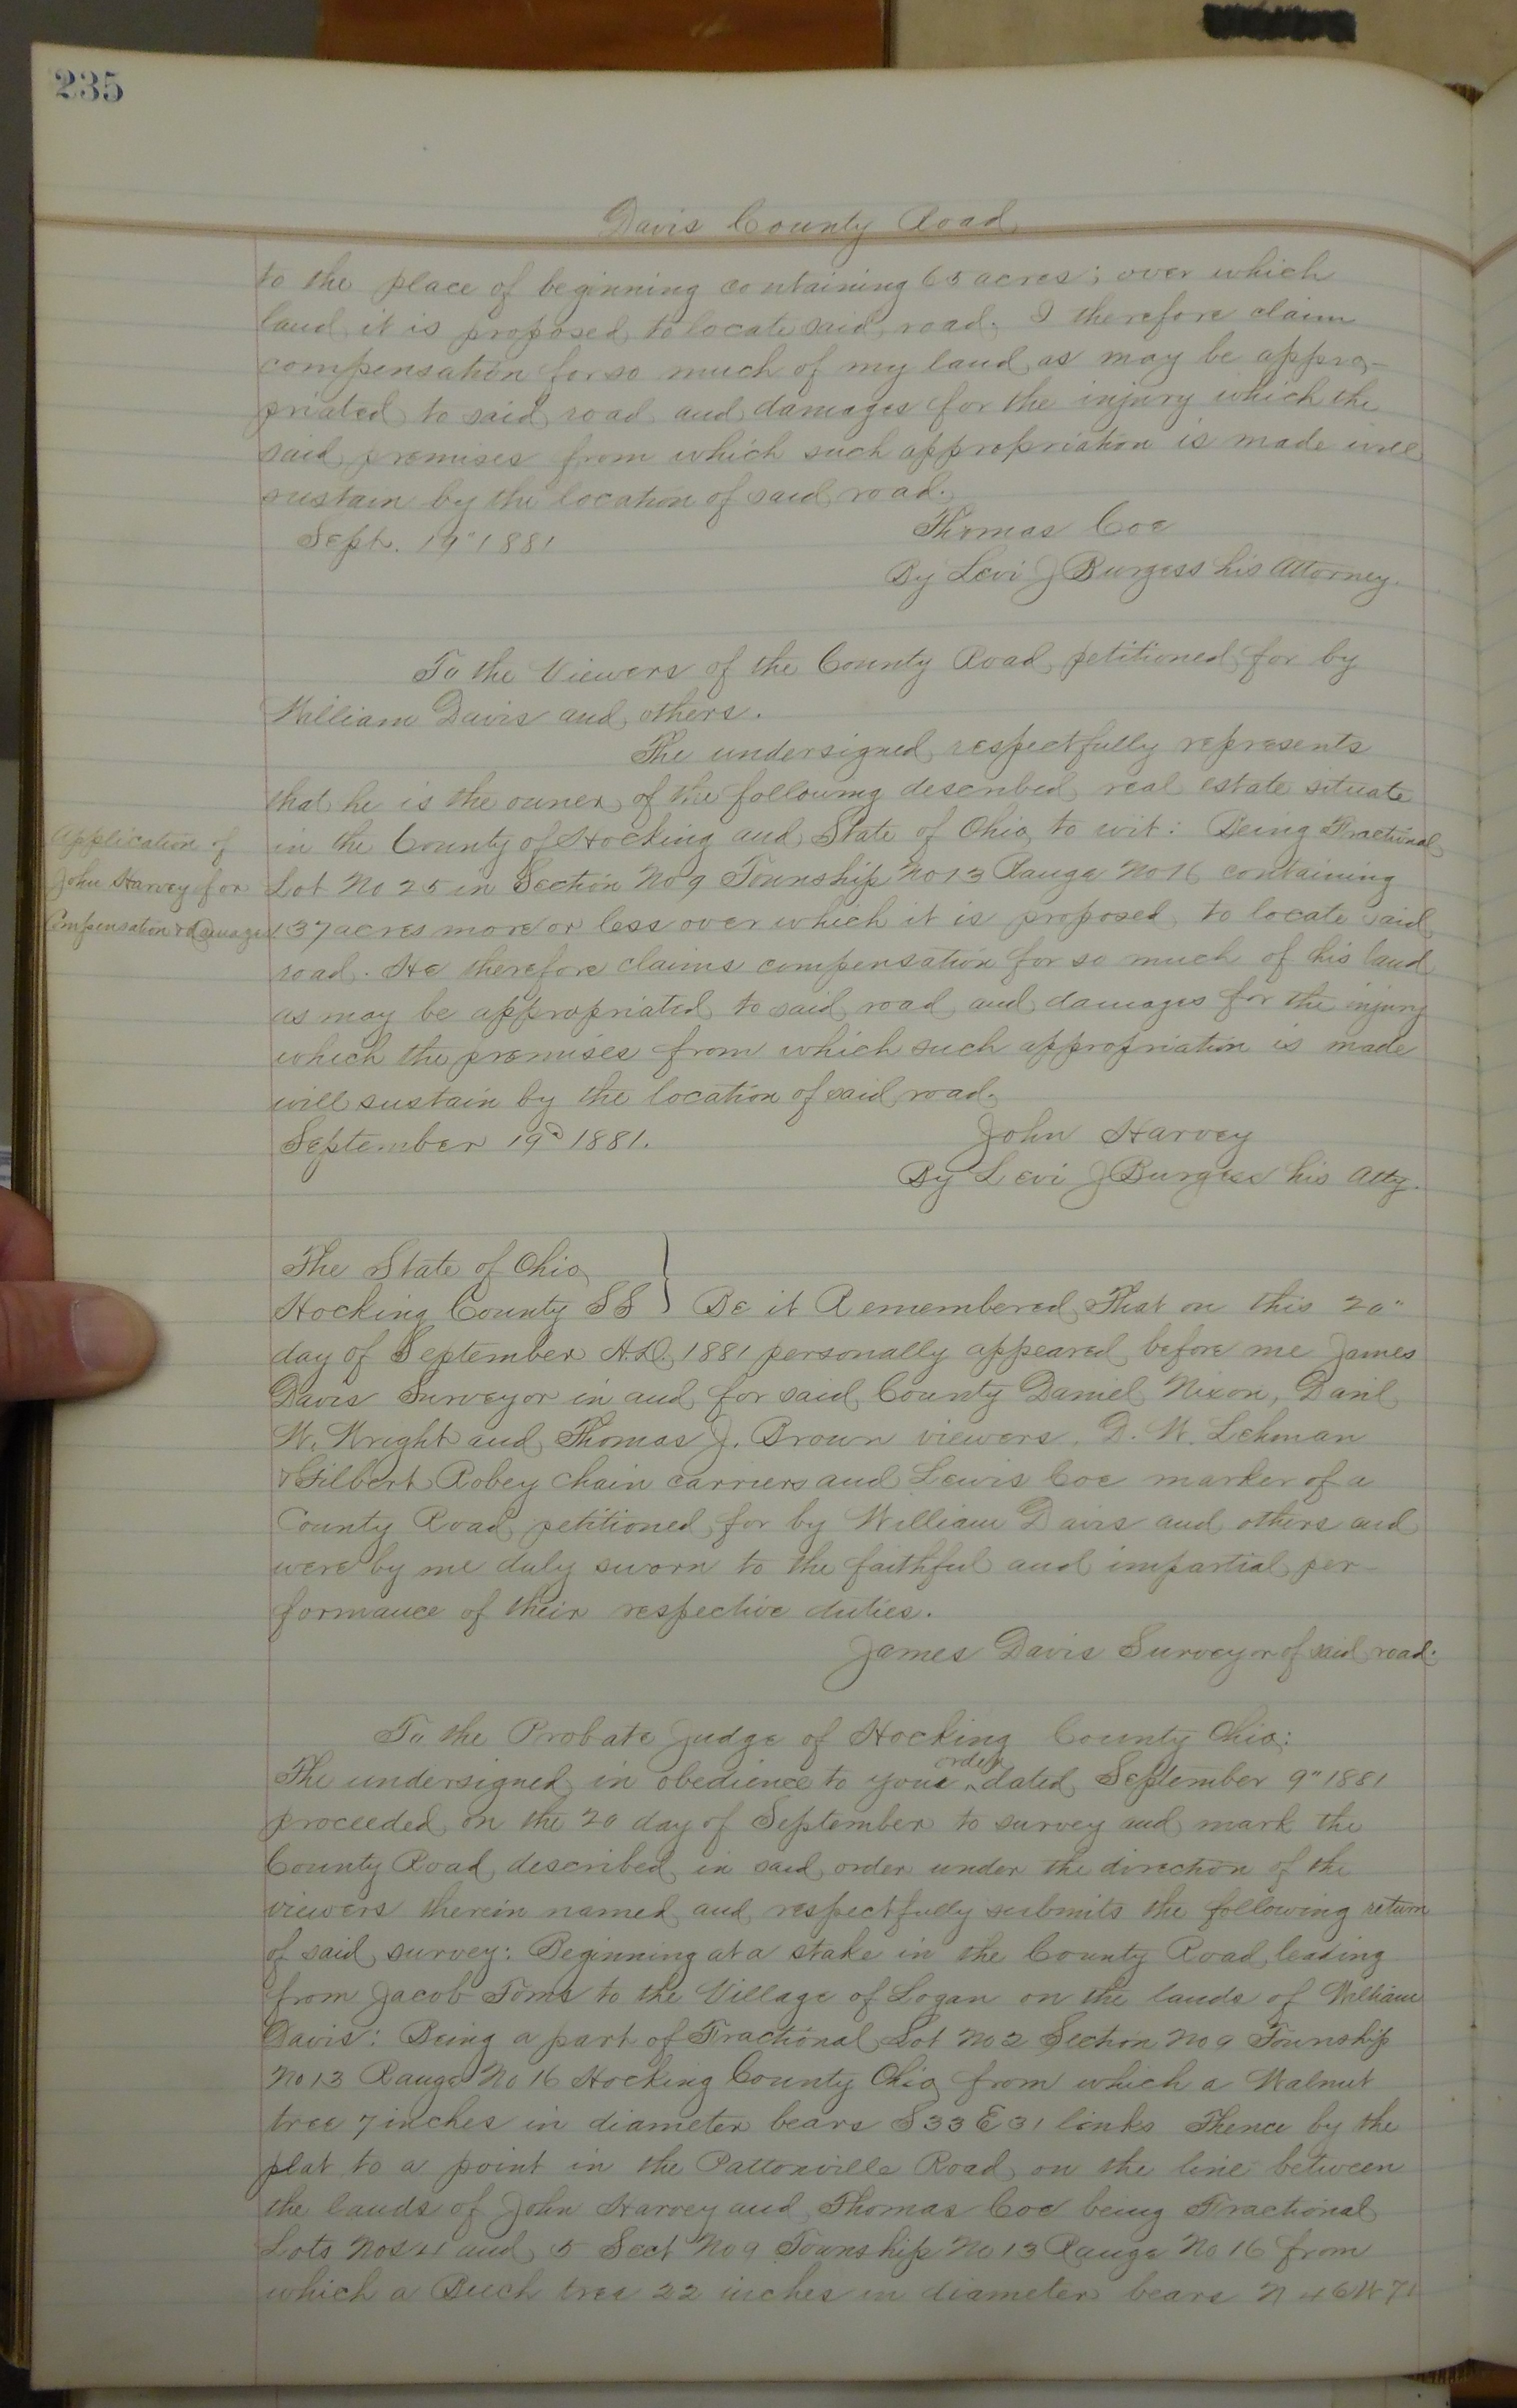 235
Davis County Road
to the place of beginning containing 65 acres; over which
land it is proposed to locate said road. I therefore claim
compensation for so much of my land as may be appro-
priated to said road and damages for the injury which the
said premises from which such appropriation is made will
sustain by the location of said road.
Sept. 19" 1881 Thomas Coe
By Levi J Burgess his Attorney.
To the Viewers of the County Road petitioned for by
William Davis and others.
The undersigned respectfully represents
that he is the owner of the following described real estate situate
in the County of Hocking and State of Ohio to wit: Being Fractional
Application of
John Harvey for
Compensation & damages
Lot No 25 in Section No 9 Township No 13 Range No 16 containing
137 acres more or less over which it is proposed to locate said
road. He therefore claims compensation for so much of his land
as may be appropriated to said road and damages for the injury
which the premises from which such appropriation is made
will sustain by the location of said road.
September 19d 1881. John Harvey
By Levi J Burgess his Atty.
The State of Ohio
Hocking County SS } Be it Remembered That on this 20"
day of September A.D. 1881 personally appeared before me James
Davis Surveyor in and for said County Daniel Nixon, Danl
W. Wright and Thomas J. Brown viewers, D. W. Lehman
& Gilbert Robey Chain carriers and Lewis Coe marker of a
County Road petitioned for by William Davis and others and
were by me duly sworn to the faithful and impartial per-
formance of their respective duties.
James Davis Surveyor of said road.
To the Probate Judge of Hocking County Ohio:
The undersigned in obedience to your order dated September 9" 1881
proceeded on the 20 day of September to survey and mark the
County Road described in said order under the direction of the
viewers therein named and respectfully submits the following return
of said survey: Beginning at a stake in the County Road leading
from Jacob Toms to the Village of Logan on the lands of William
Davis: Being a part of Fractional Lot No 2 Section No 9 Township
No 13 Range No 16 Hocking County Ohio from which a Walnut
tree 7 inches in diameter bears S 33 E 31 links Thence by the
plat to a point in the Pattonville Road on the line between
the lands of John Harvey and Thomas Coe being Fractional
Lots Nos 4 and 5 Sect No 9 Township No 13 Range No 16 from
which a Beech tree 22 inches in diameter bears N 46 W 71